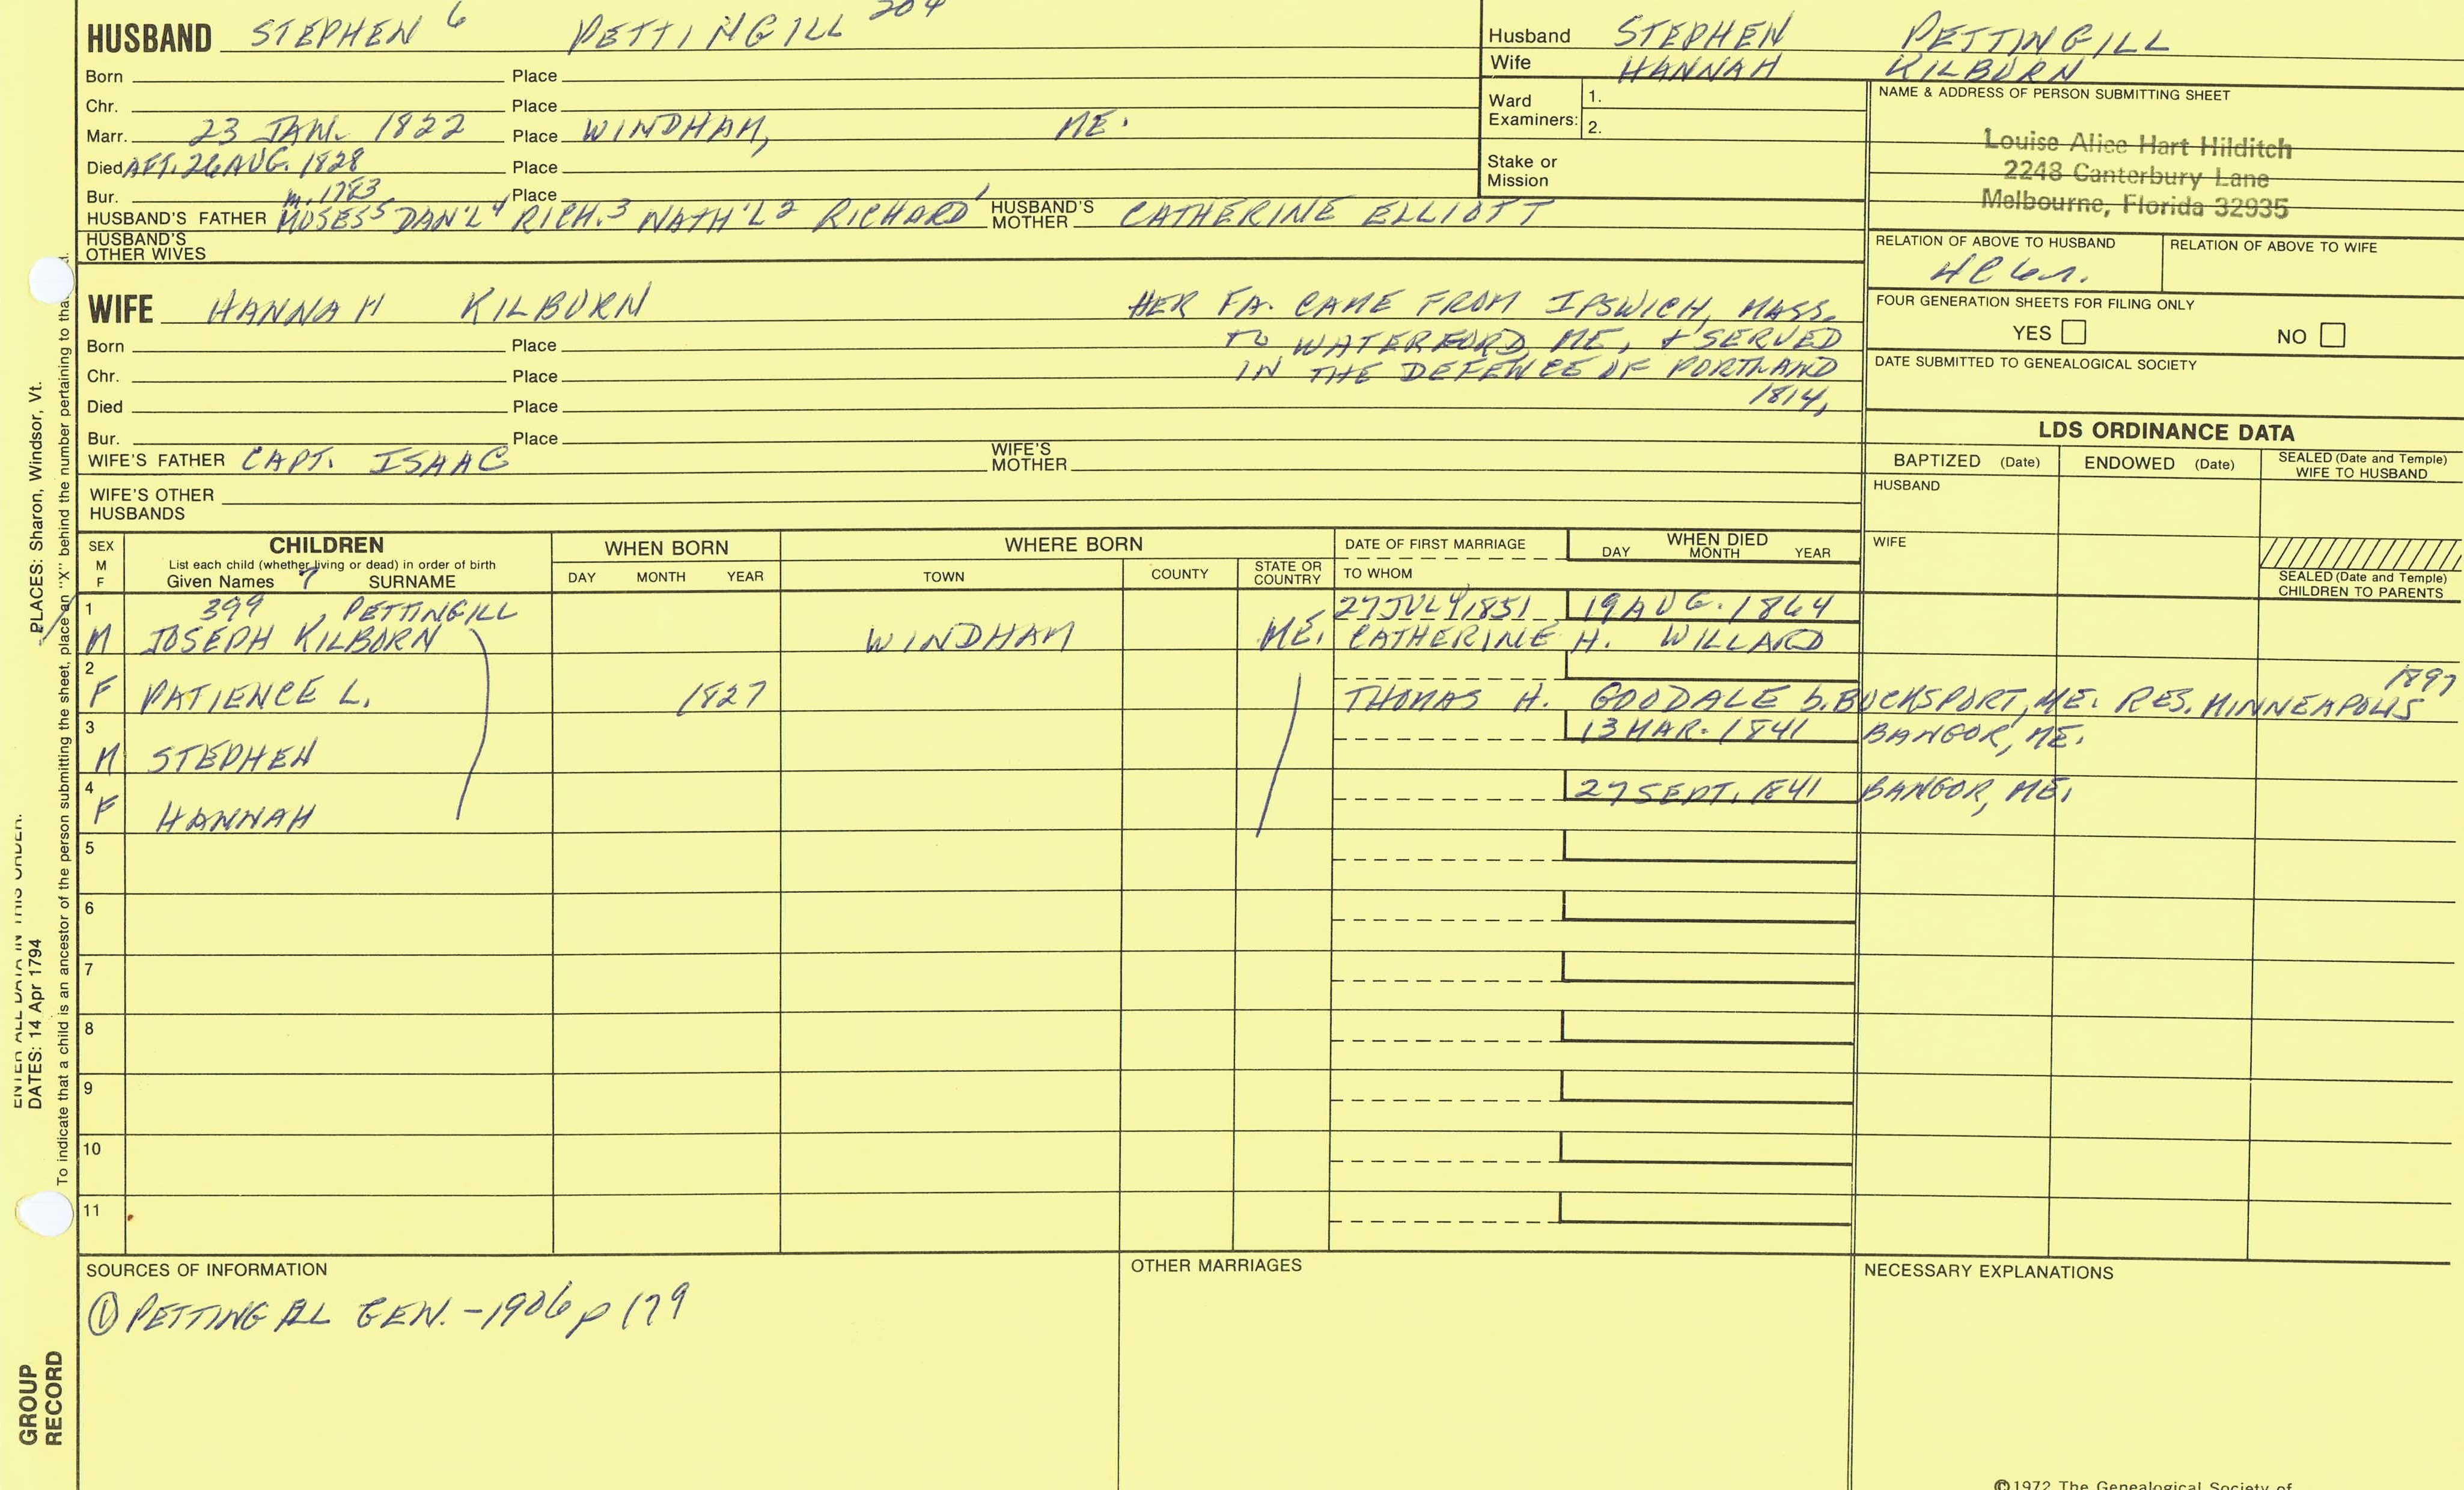 HUSBAND STEPHEN 6 PETTINGILL 204
Born Place
Chr. Place
Marr. 23 JAN. 1822 Place WINDHAM, ME.
Died AFT. 26 AUG. 1828 Place
Bur. Place
m. 1783
HUSBAND'S FATHER MOSES5 DAN'L4 RICH.3 NATH'L2 RICHARD1 HUSBAND'S MOTHER CATHERINE ELLIOTT
HUSBAND'S OTHER WIVES
Husband STEPHEN PETTINGILL
Wife HANNAH KILBORN
Ward Examiners: 1.
2.
Stake or Mission
NAME & ADDRESS OF PERSON SUBMITTING SHEET
Louise Alice Hart Hilditch
2248 Canterbury Lane
Melbourne, Florida 32935
RELATION OF ABOVE TO HUSBAND RELATION OF ABOVE TO WIFE
FOUR GENERATION SHEETS FOR FILING ONLY
YES NO
DATE SUBMITTED TO GENEALOGICAL SOCIETY
WIFE HANNAH KILBORN
HER FA. CAME FROM IPSWICH, MASS.
TO WATERFORD, ME, & SERVED
IN THE DEFENCE OF PORTLAND
1814,
Born Place
Chr. Place
Died Place
Bur. Place
WIFE'S FATHER CAPT. ISAAC WIFE'S MOTHER
WIFE'S OTHER HUSBANDS
LDS ORDINANCE DATA
BAPTIZED (Date) ENDOWED (Date) SEALED (Date and Temple) WIFE TO HUSBAND
HUSBAND
WIFE
SEALED (Date and Temple) CHILDREN TO PARENTS
SEX M F
CHILDREN
List each child (whether living or dead) in order of birth
Given Names 7 SURNAME
WHEN BORN
DAY MONTH YEAR
WHERE BORN
TOWN COUNTY STATE OR COUNTRY
DATE OF FIRST MARRIAGE
TO WHOM
WHEN DIED
DAY MONTH YEAR
1 399 , PETTINGILL 27 JULY, 1851 19 AUG. 1864
M JOSEPH KILBORN WINDHAM ME. CATHERINE H. WILLARD
2 1897
F PATIENCE L. 1827 THOMAS H. GOODALE b. BUCKSPORT, ME. RES. MINNEAPOLIS
3 13 MAR. 1841 BANGOR, ME.
M STEPHEN
4 27 SEPT. 1841 BANGOR, ME.
F HANNAH
5
6
7
8
9
10
11
SOURCES OF INFORMATION
① PETTINGELL GEN. - 1906 p 179
OTHER MARRIAGES
NECESSARY EXPLANATIONS
©1972 The Genealogical Society of
PLACES: Sharon, Windsor, Vt.
ENTER ALL DATA IN THIS ORDER:
DATES: 14 Apr 1794
To indicate that a child is an ancestor of the person submitting the sheet, place an "X" behind the number pertaining to tha
GROUP
RECORD